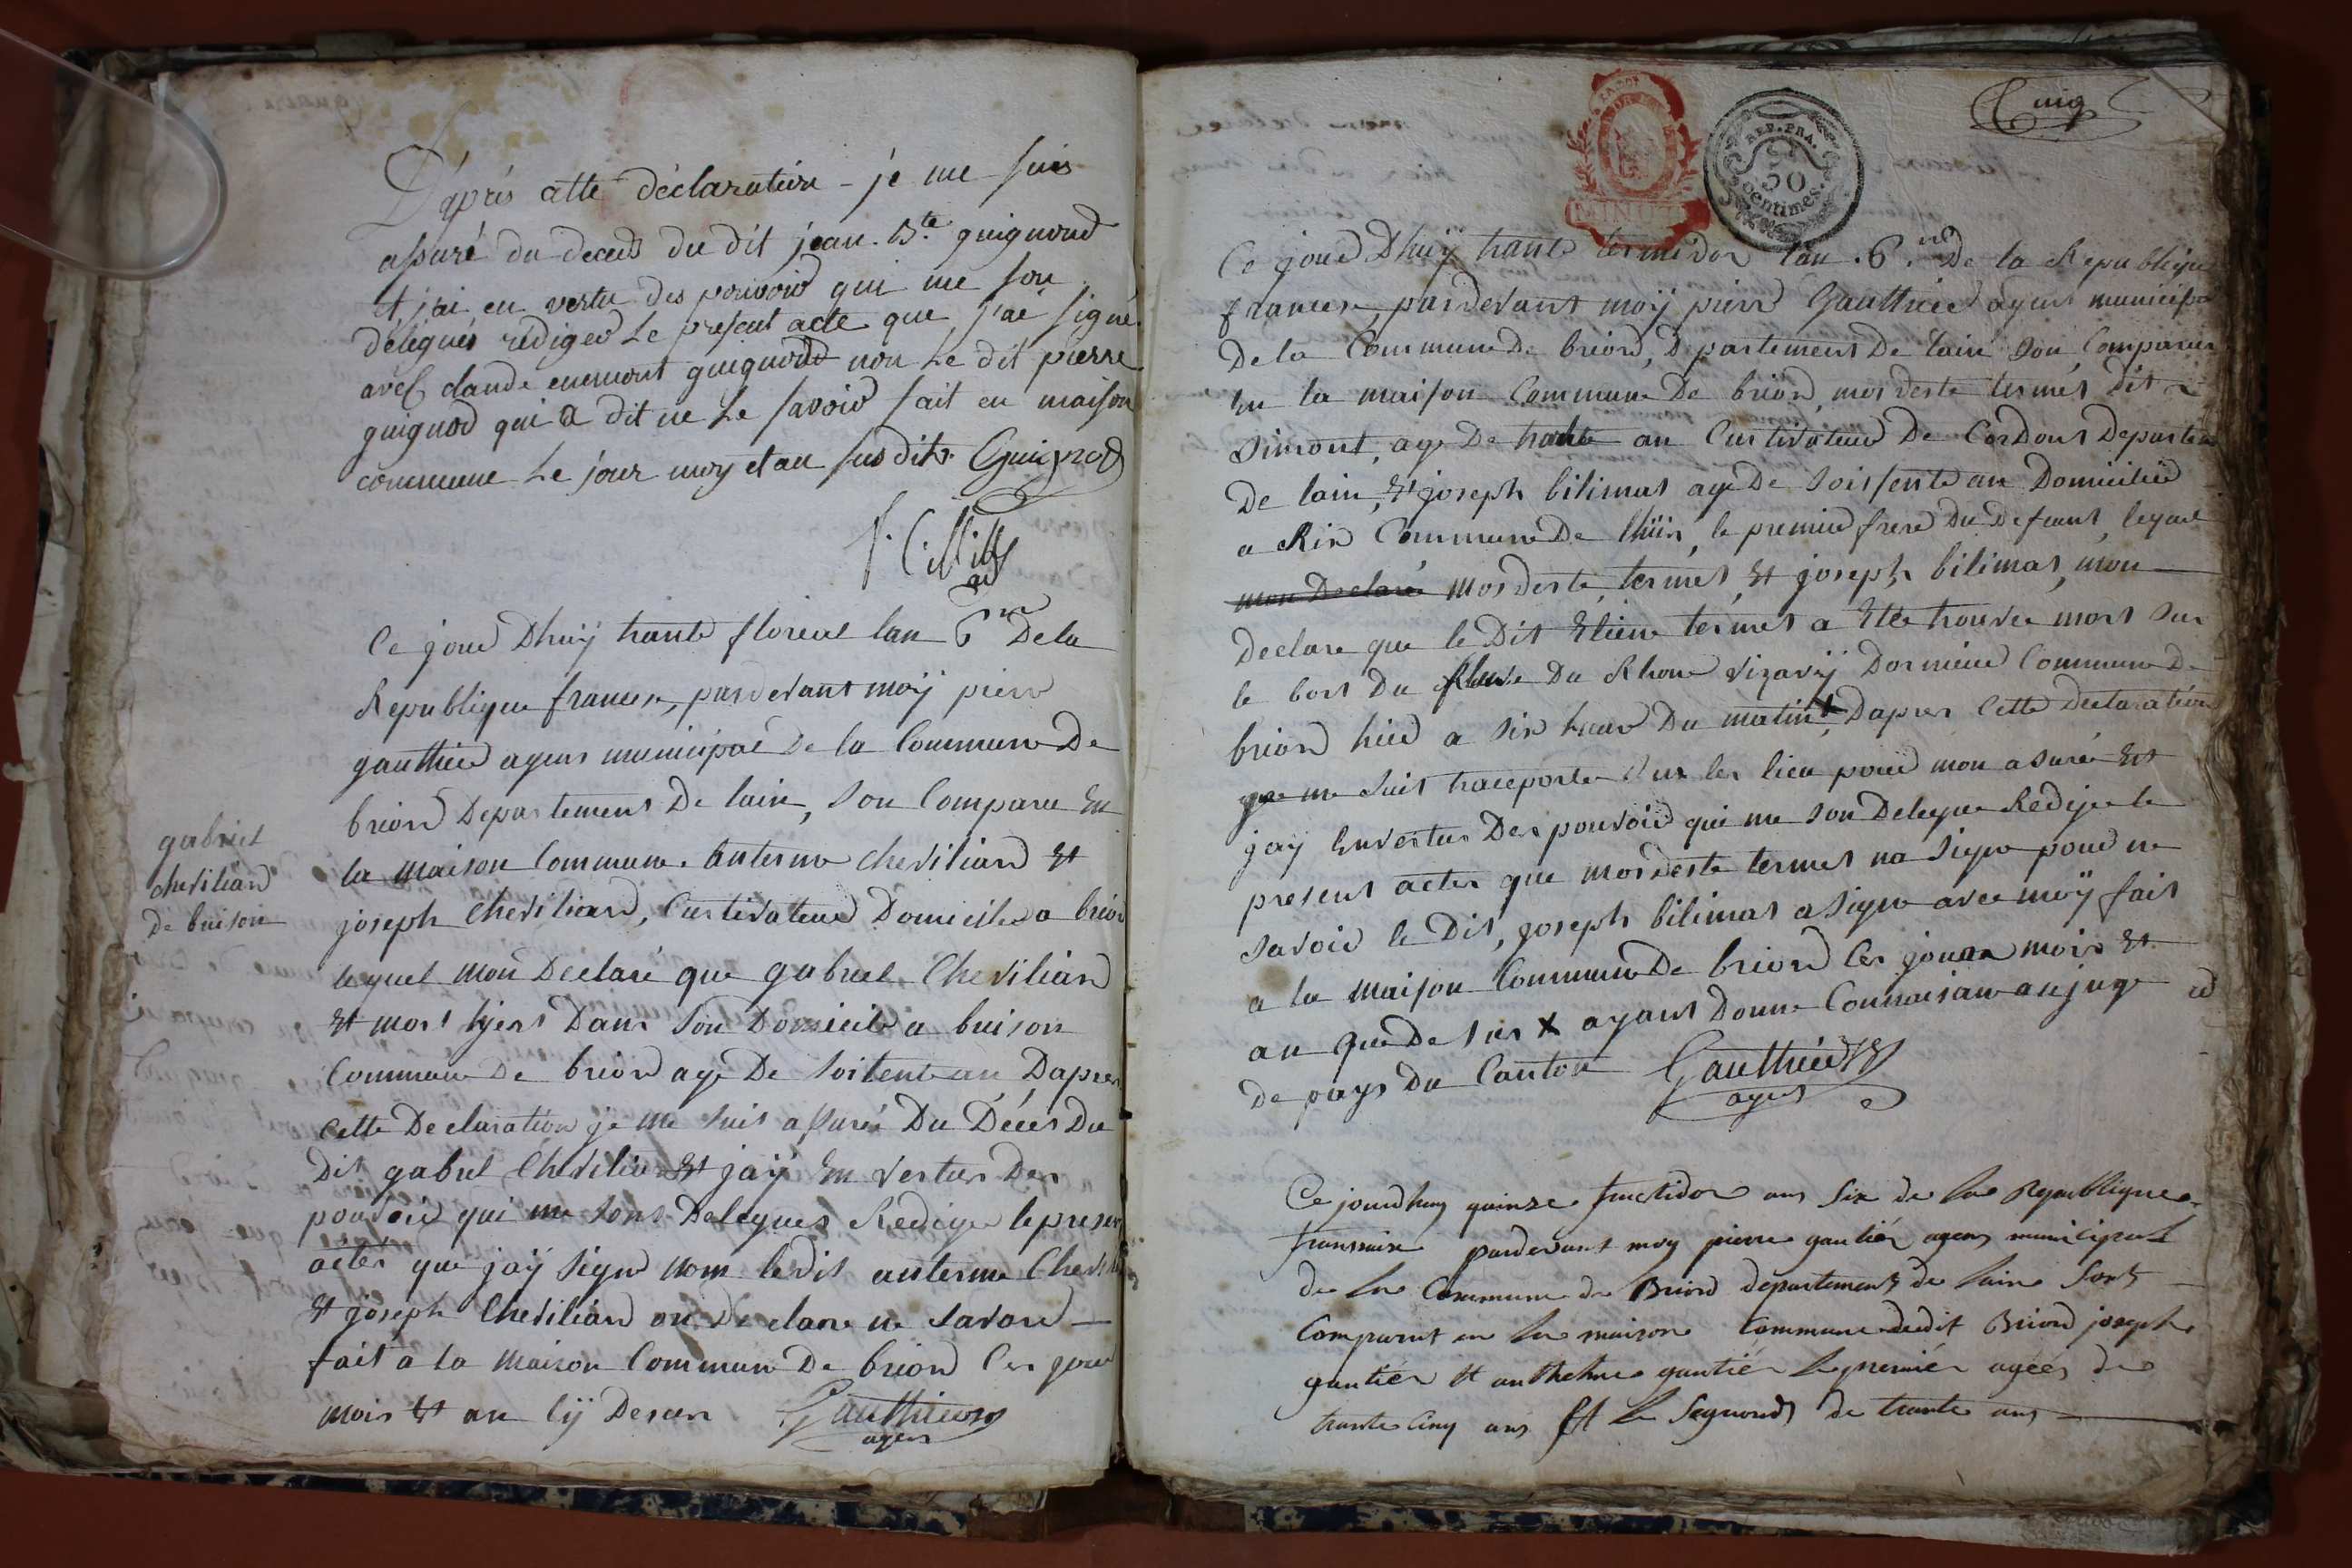 D'après cette déclaration - je me suis
assuré du decès du dit jean. Bte guignord
et j'ai en vertu des pouvoid qui me son
délégués rédiger Le present acte que j'ai signé
avec claude enemont guignord non Le dit pierre
guignod qui a dit ne Le savoid fait en maison
commune Le jour moy et an susdits Guignod
Ce joud Dhuÿ trante floreal lan 6me De la
Republique francese, pardevant moÿ pierre
gauthied agens municipal de la Commune De
briord Departement De lain, Son Comparu En
la maison Commune. anterme cheviliard Et
joseph Cheviliard, Curtivateud Domicilies a briord
gabriel
cheviliard
De buison
lequel mon Declaré que gabriel Cheviliard
Et mort hjert Dans Son Domicile a buison
Commune De briord age De Soisente an, Dapres
Cette Declaration je me suis assuré Du Déces Du
Dit gabriel Cheviliard Et jaÿ En vertus Des
pouvoid qui me sont Delegues Redige le present
actes que jaÿ Signe nom le dit anterme Chevili
Et joseph Cheviliard on De clare ne savoid
fait a la maison Commune De briord Ces joud
mois Et an Cÿ Desus Gauthied
agen
Cuig
REP. FRA.
50
centimes.
MINUT
Ce joud Dhuÿ trante termidor lan .6.me De la Republique
francese, pardevant moÿ pierre Gauthied agens municipal
De la Commune De briord, Dpartement De lain Son Comparus
En la maison Commune De briord, mordeste termet dit
Simont, age De trante an Curtivateud De Cordons Departem
De lain, Et joseph bilimat age De Soissente an Domicilié
a Rix Commune De lhuis, le premied frere Du Defunt, lequel
mon Declaré mordeste, termet, Et joseph bilimat, mon
Declare que le Dit Etiene termet a Ette trouve mort sur
le bort Du fleuve Du Rhone vizavÿ Dormieud Commune De
briord hied a six heure Du matin, Dapres Cette Declaration
je me suit traceporte Sur les lieu poud mon asuré Et
jaÿ Envertus Des pouvoid qui me son Delegue Redije le
present actes que mordeste termet na signe poud ne
savoid le Dit, joseph bilimat a signe avec moÿ fait
a la maison Commune De briord Ces jour mois Et
an que De sus x ayant Donne Connaisance au juge
De pays Du Canton Gauthied
agens
Ce jourdhuy quinze fructidor ans six de la Republique
franssaise pardevant moy pierre gautiér agens municipal
de la Commune de Briord departement de lain Sont
Comparut en la maison Commune dudit Briord joseph
gautiér et anthelme gautiér le premiér agéés de
trante cinq ans Et le Segond de trante ans